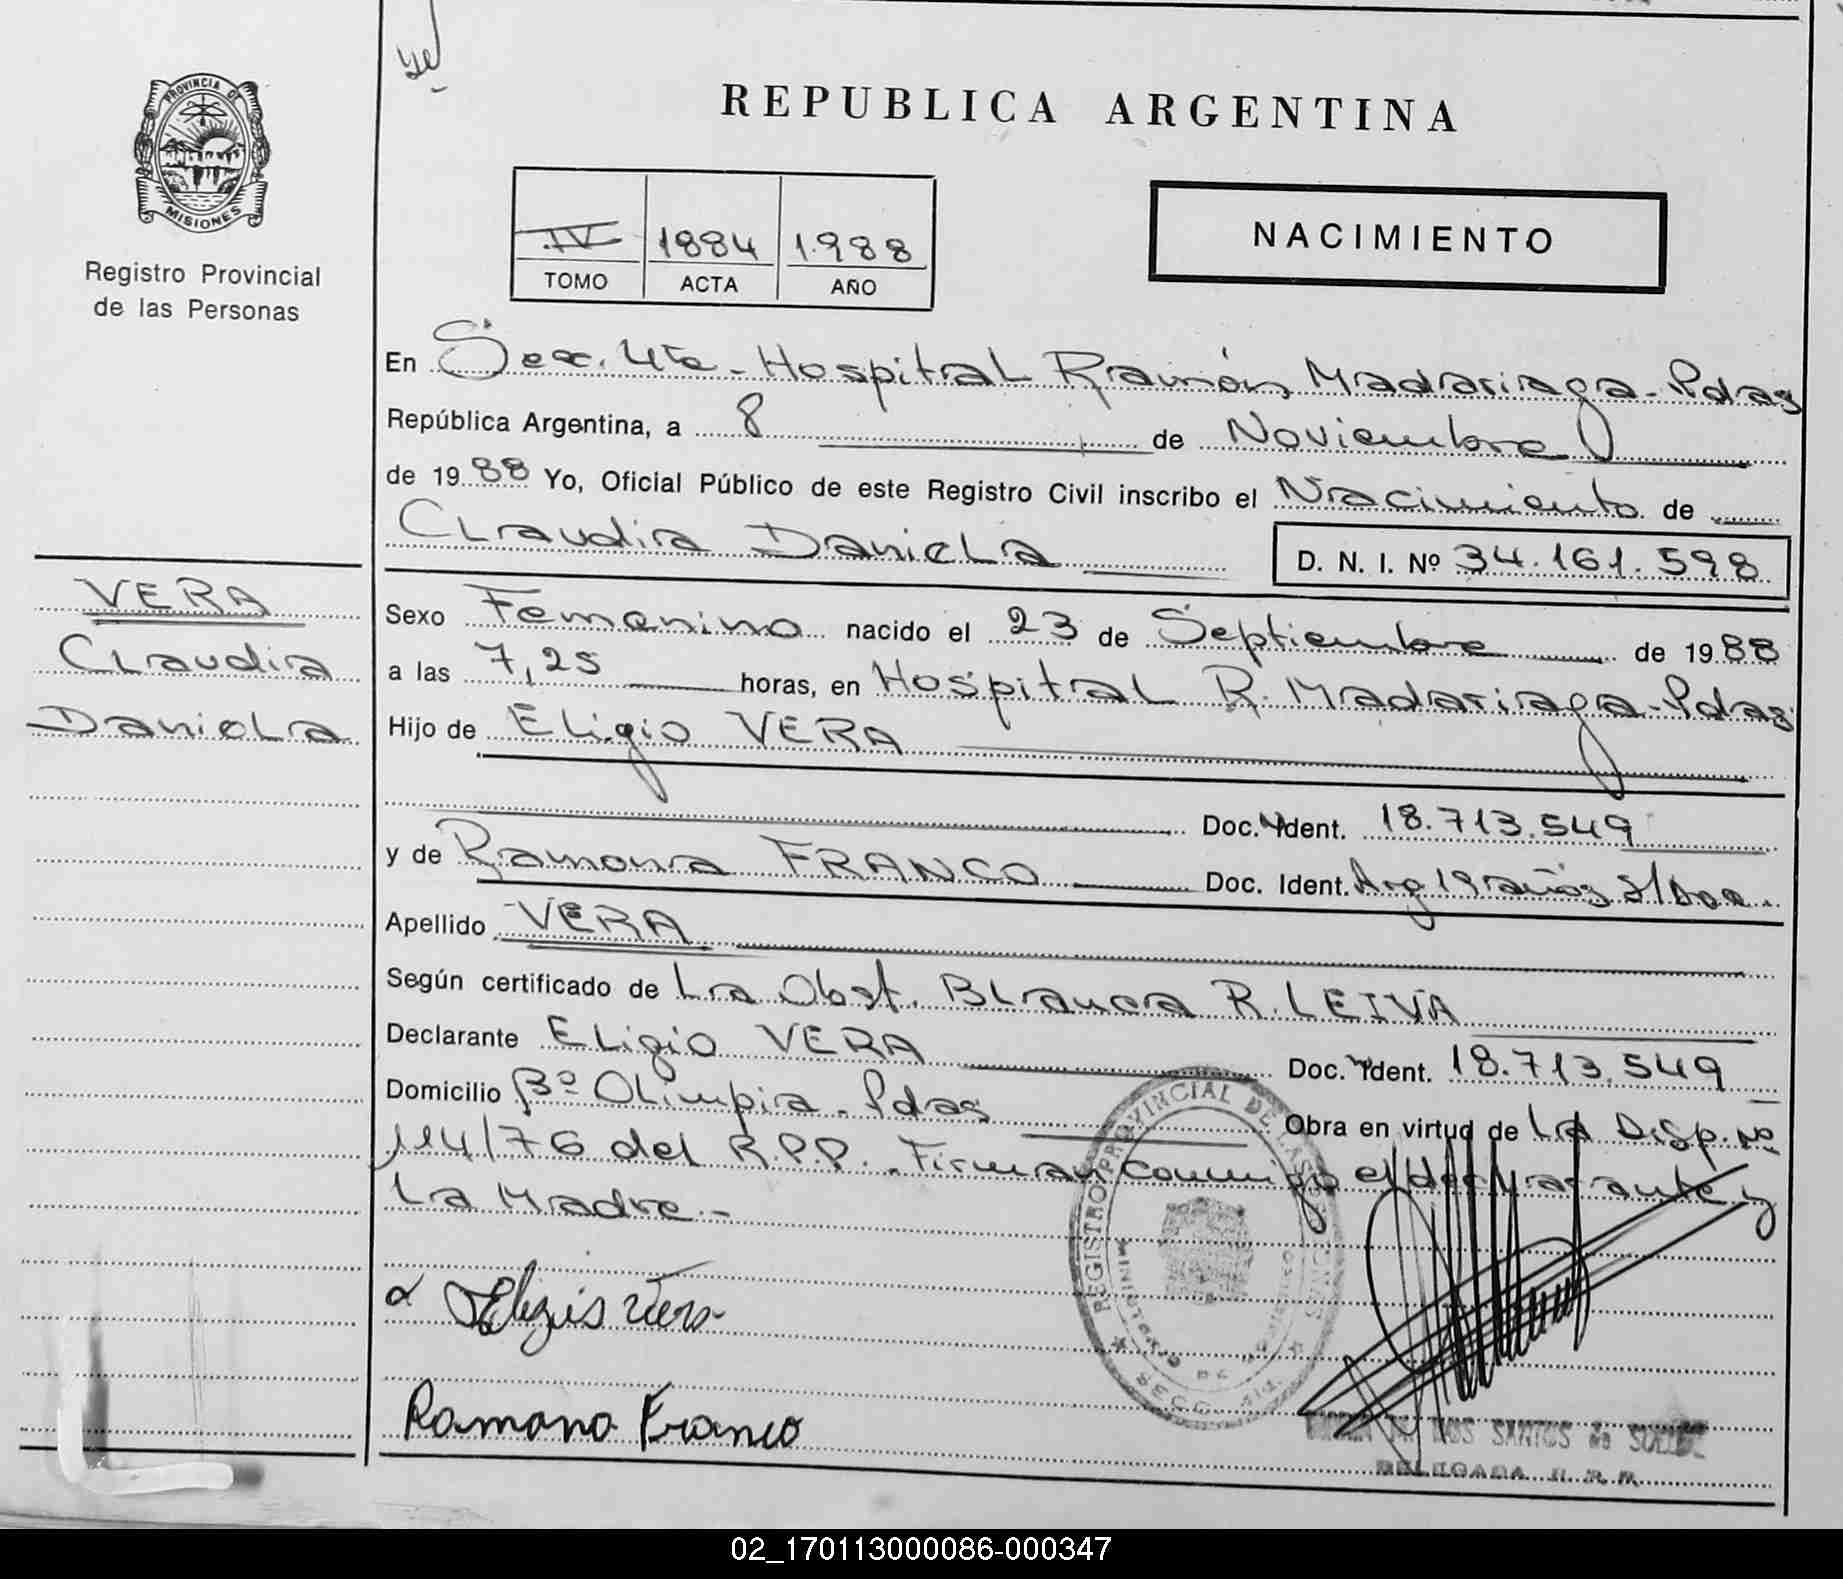 REPUBLICA ARGENTINA
PROVINCIA DE
MISIONES
Registro Provincial
de las Personas
IV 1884 1.988
TOMO ACTA AÑO
NACIMIENTO
En Sec. 4ta - Hospital Ramón Madariaga - Pdas
República Argentina, a 8 de Noviembre
de 1988 Yo, Oficial Público de este Registro Civil inscribo el Nacimiento de
Claudia Daniela
D. N. I. Nº 34.161.598
VERA
Claudia
Daniela
Sexo Femenino nacido el 23 de Septiembre de 1988
a las 7,25 horas, en Hospital R. Madariaga - Pdas
Hijo de Eligio VERA
Doc. Ident. 18.713.549
y de Ramona FRANCO Doc. Ident. Arg 19 años S/Doc.
Apellido VERA
Según certificado de La Obst. Blanca R. LEIVA
Declarante Eligio VERA Doc. Ident. 18.713.549
Domicilio Bº Olimpia - Pdas Obra en virtud de La Disp. Nº
114/76 del R.P.P. - Firman conmigo el declarante y
La Madre -
REGISTRO PROVINCIAL DE LAS PERSONAS
Eligio Vera
Ramona Franco
DOS SANTOS de
DELEGADA R. P. P.
02_170113000086-000347